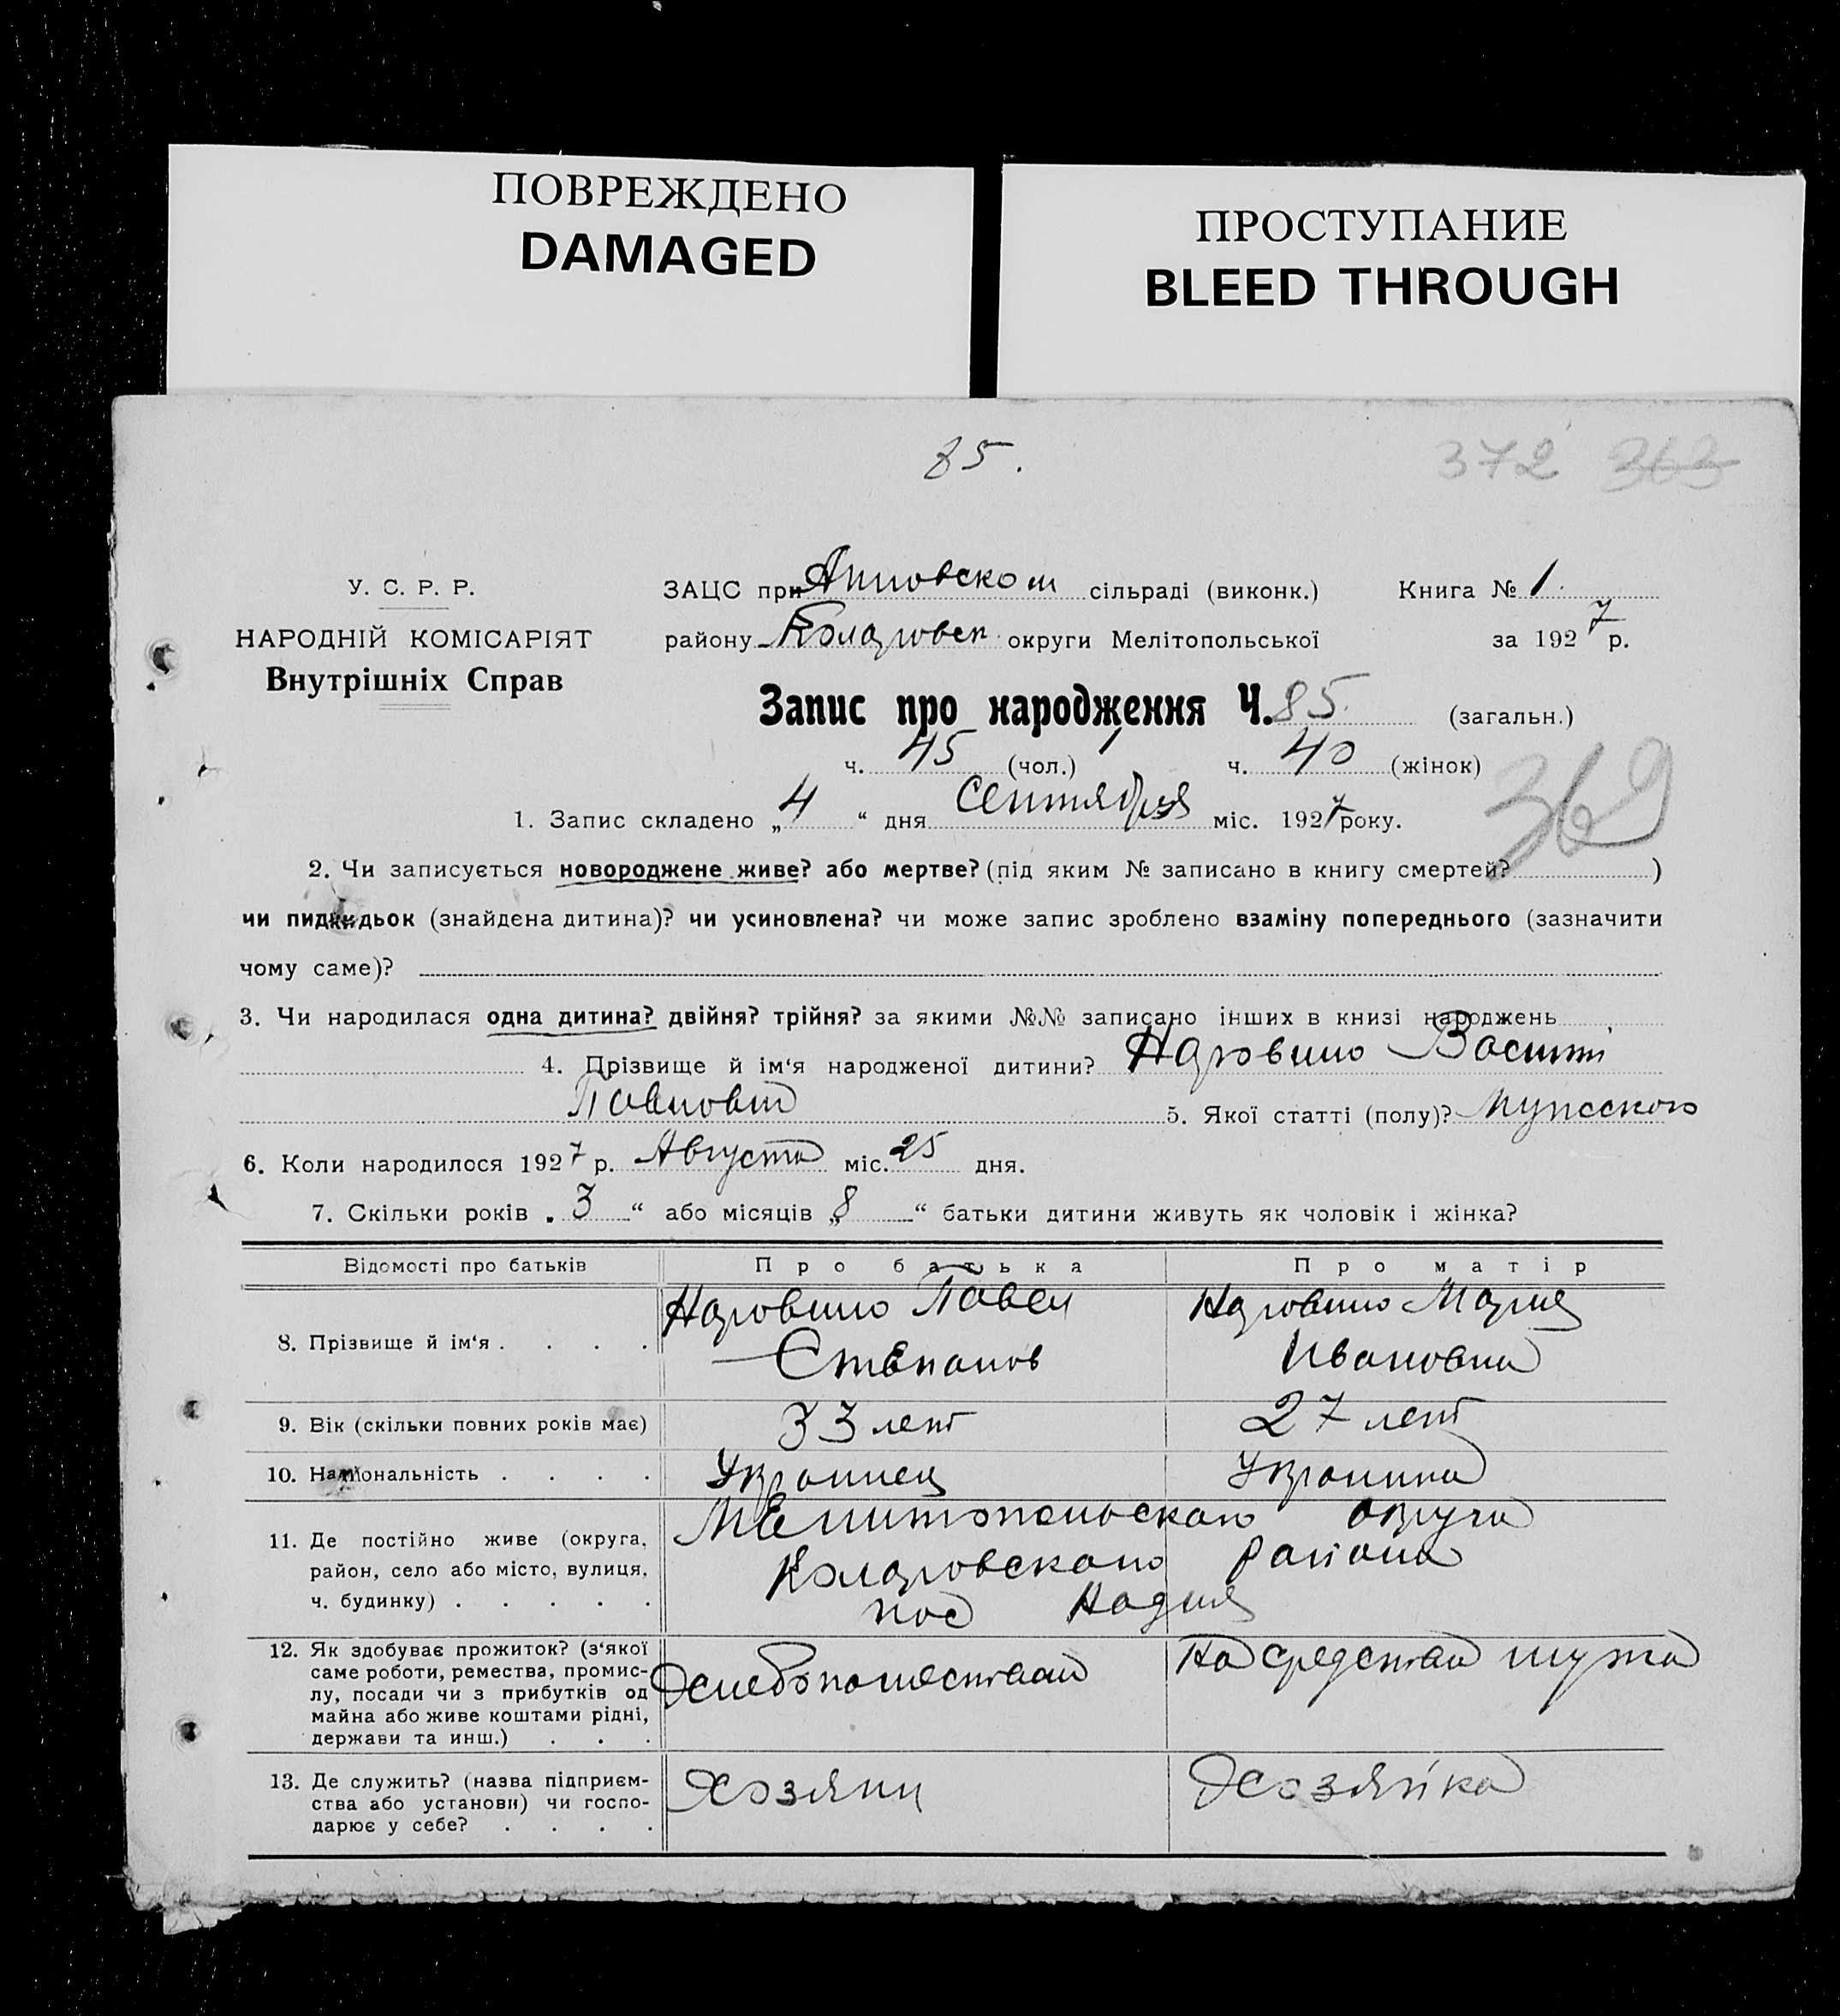 ПОВРЕЖДЕНО
DAMAGED
ПРОСТУПАНИЕ
BLEED THROUGH
85.
372 363
У. С. Р. Р.
НАРОДНІЙ КОМІСАРІЯТ
Внутрішніх Справ
ЗАЦС при сільраді (виконк.) Книга № 1.
району Коларовск. округи Мелітопольської за 1927 р.
Запис про народження Ч. 85. (загальн.)
ч. 45 (чол.) ч. 40 (жінок)
369
1. Запис складено „4“ дня Сентября міс. 1927 року.
2. Чи записується новороджене живе? або мертве? (під яким № записано в книгу смертей? )
чи пидкидьок (знайдена дитина)? чи усиновлена? чи може запис зроблено взаміну попереднього (зазначити
чому саме)?
3. Чи народилася одна дитина? двійня? трійня? за якими №№ записано інших в книзі народжень
4. Прізвище й ім‘я народженої дитини?
5. Якої статті (полу)? Мужского
6. Коли народилося 1927 р. Августа міс. 25 дня.
7. Скільки років „3“ або місяців „8“ батьки дитини живуть як чоловік і жінка?
Відомості про батьків
Про батька
Про матір
8. Прізвище й ім‘я . . . .
Павел
Степанов
Мария
Ивановна
9. Вік (скільки повних років має)
33 лет
27 лет
10. Національність . . . .
Украинец
Украинка
11. Де постійно живе (округа,
район, село або місто, вулиця,
ч. будинку) . . . . .
Мелитопольского округа
Коларовского района
пос Надия
12. Як здобуває прожиток? (з‘якої
саме роботи, ремества, промис-
лу, посади чи з прибутків од
майна або живе коштами рідні,
держави та инш.) . . .
Хлебопашеством
На средства мужа
13. Де служить? (назва підприєм-
ства або установи) чи госпо-
дарює у себе? . . . .
Хозяин
Хозяйка